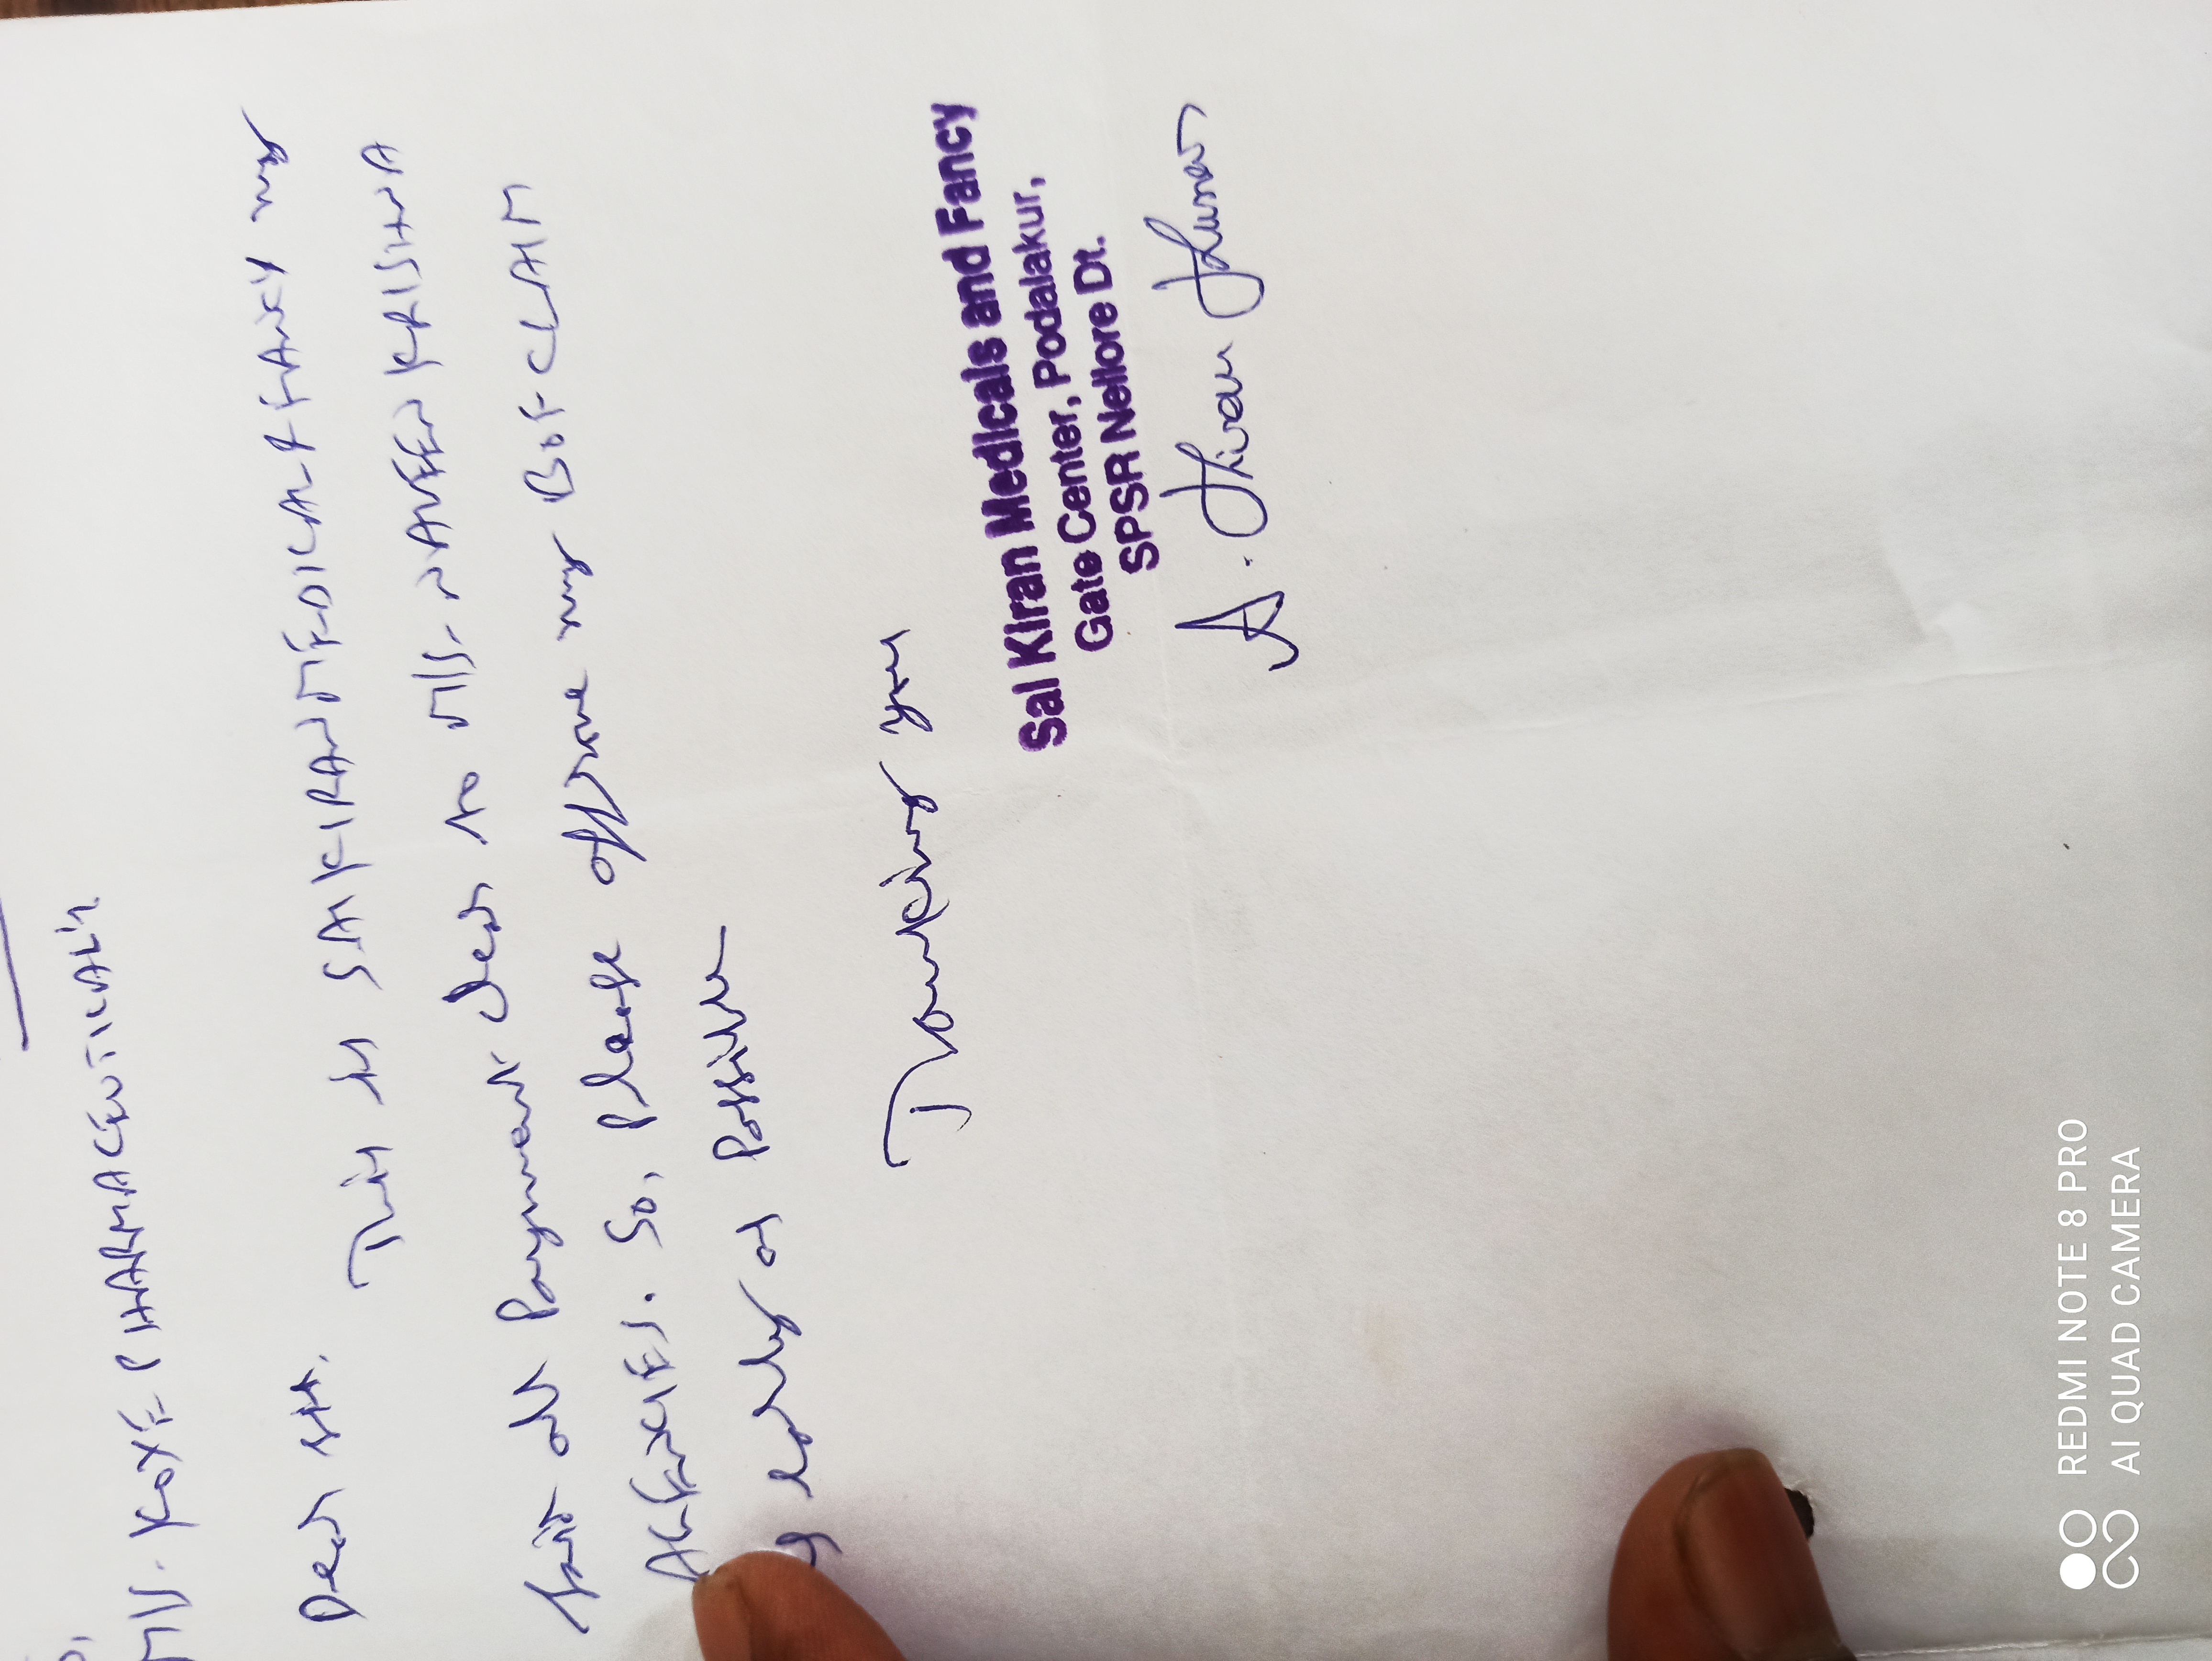 To,
M/S. KOXE PHARMACEUTICALS
Dear sir.
This is SAI KIRAN MEDICAL & FANCY my
all Payment clear to M/S. NAVEEN KRISHNA
AGENCIES. So, please my BOF CLAIM
early as Possible
Thanking you
Sai Kiran Medicals and Fancy
Gate Center, Podalakur,
SPSR Nellore Dt.
A. Kiran Kumar
REDMI NOTE 8 PRO
AI QUAD CAMERA